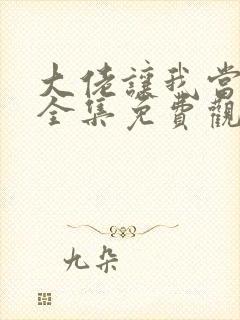 大佬讓我當
全集免費觀
九朵